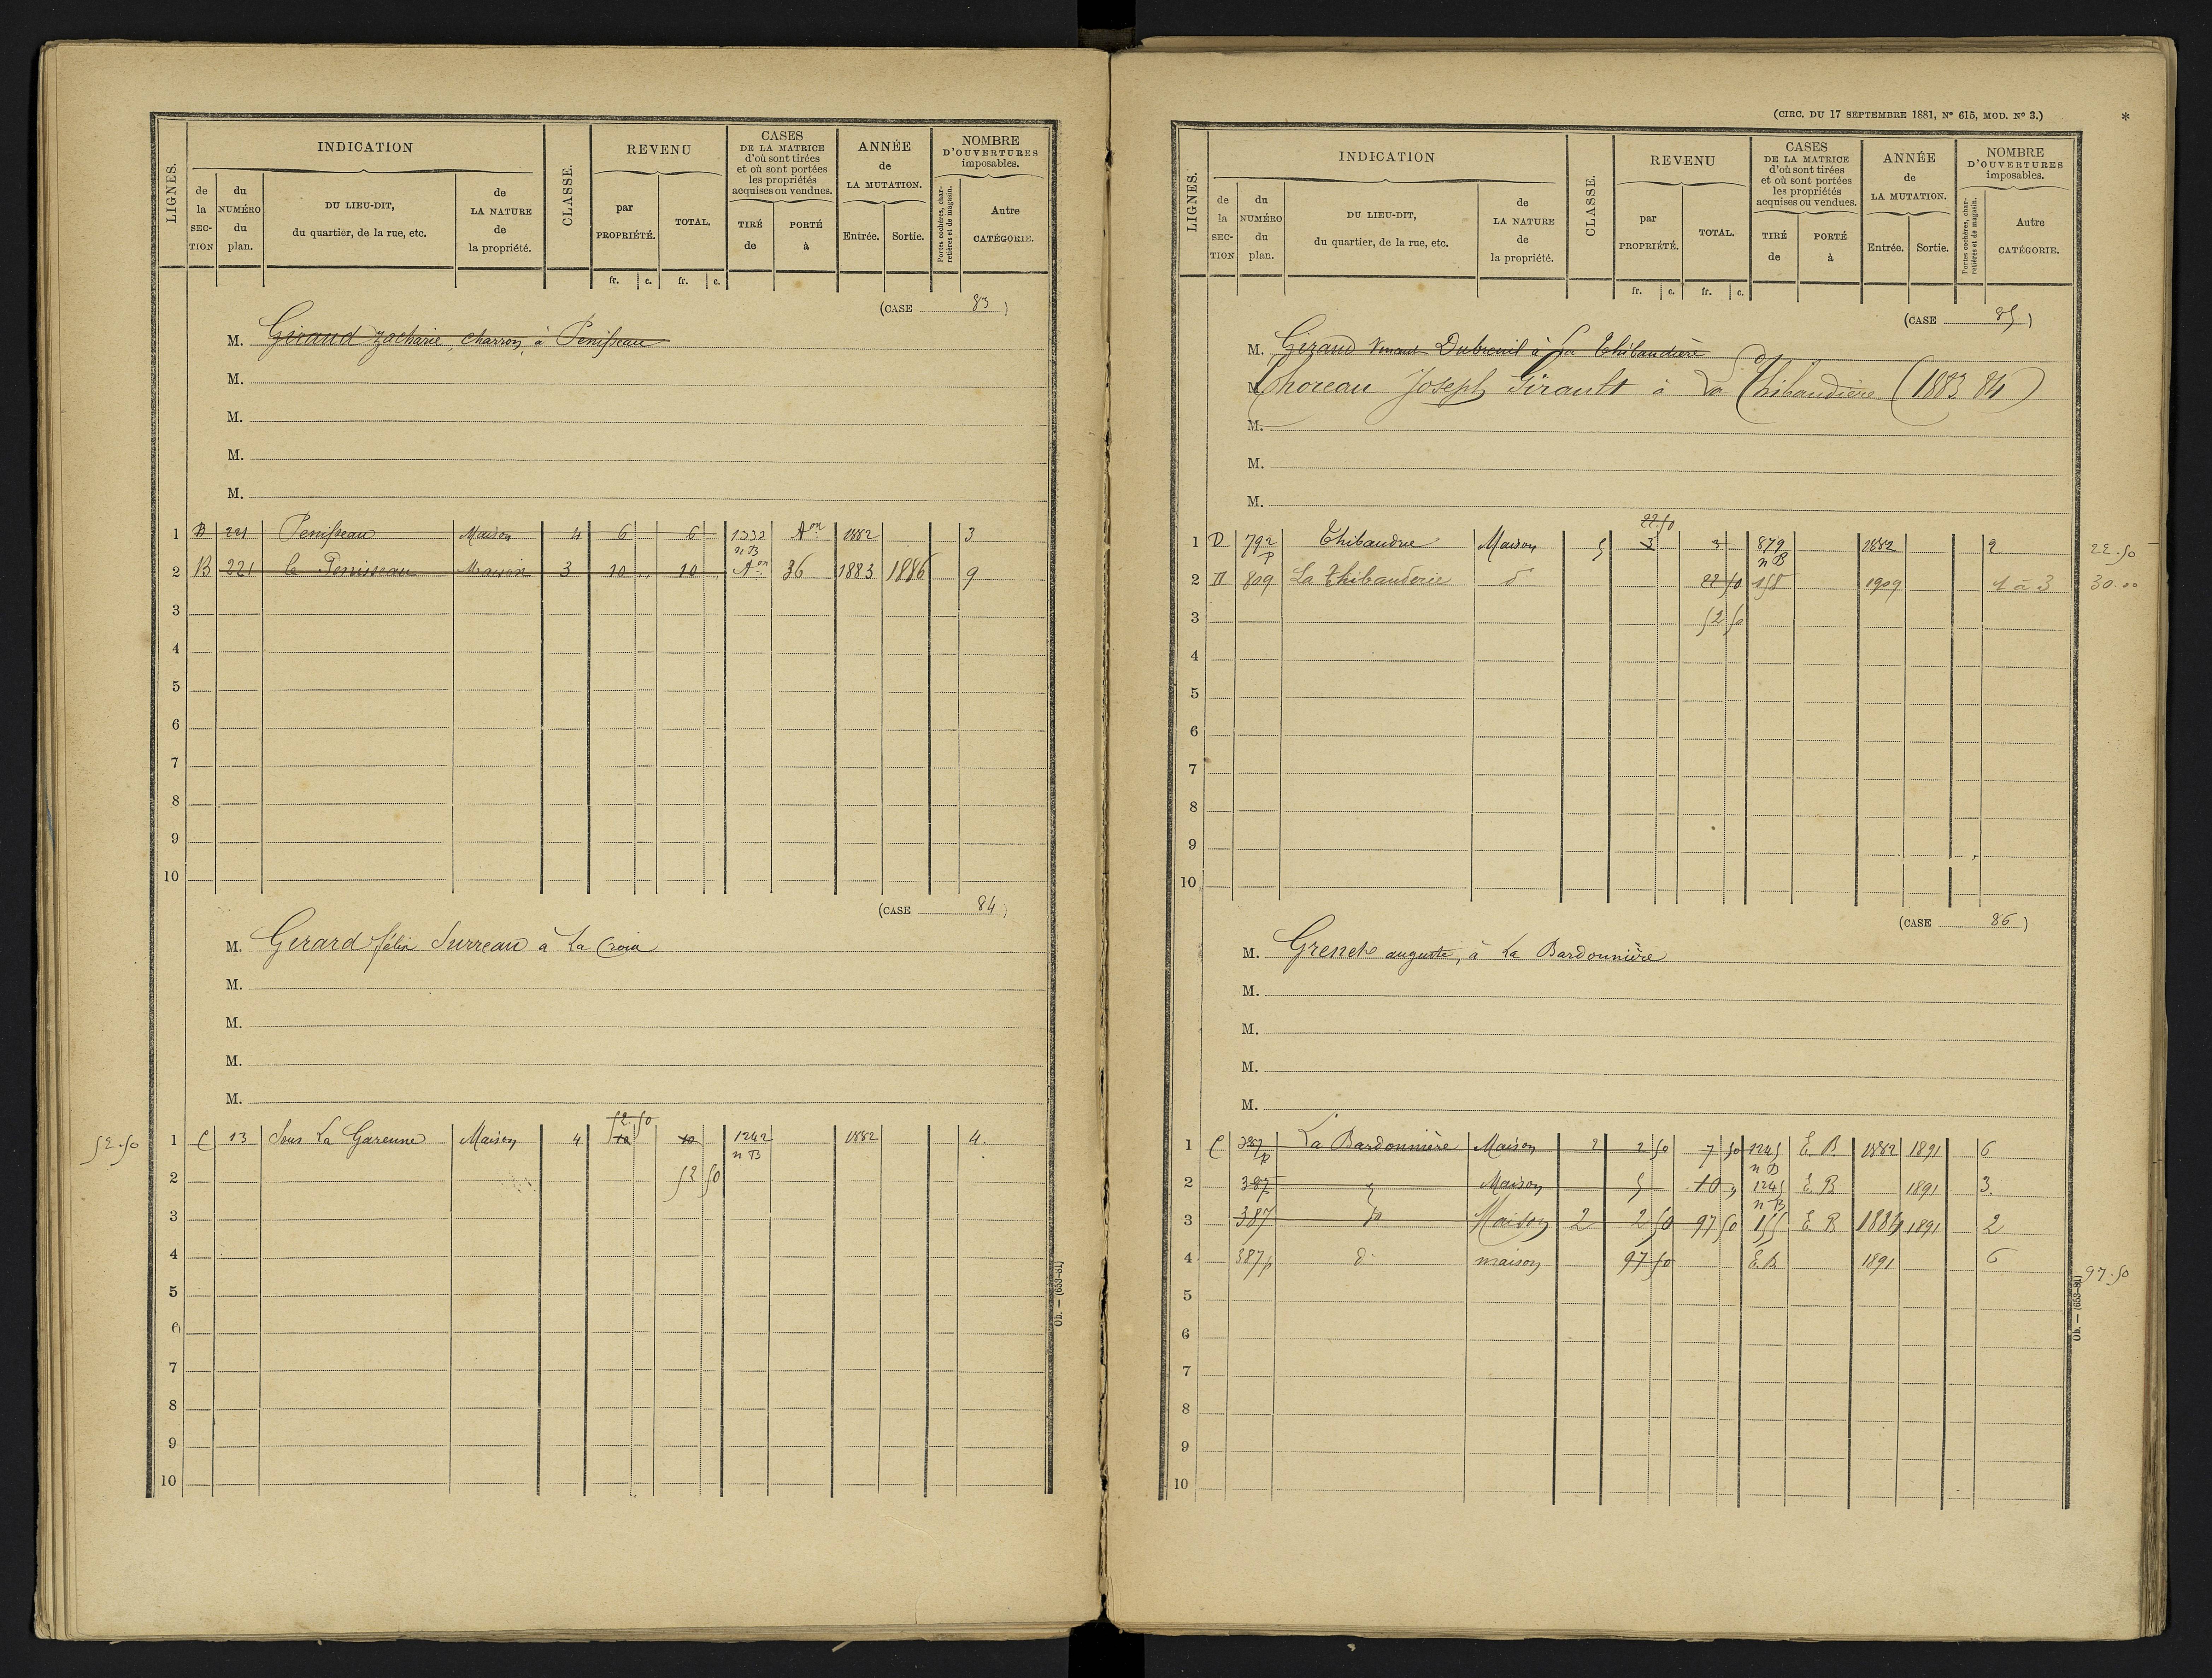 LIGNES.
INDICATION
de la SEC-TION
du NUMÉRO du plan.
DU LIEU-DIT, du quartier, de la rue, etc.
de LA NATURE de la propriété.
CLASSE.
REVENU
par PROPRIÉTÉ.
TOTAL.
fr. c. fr. c.
CASES DE LA MATRICE d'où sont tirées et où sont portées les propriétés acquises ou vendues.
TIRÉ de
PORTÉ à
ANNÉE de LA MUTATION.
Entrée. Sortie.
NOMBRE D'OUVERTURES imposables.
Portes cochères, charretières et de magasin.
Autre CATÉGORIE.
(CASE 83)
M. Giraud Zacharie, charron, à Penisseau
M.
M.
M.
M.
1 B 221 Penisseau Maison 4 6 6 1332 n B Aon 1882 3
2 B 221 le Penisseau Maison 3 10 10 Aon 36 1883 1886 9
3
4
5
6
7
8
9
10
(CASE 84)
M. Gerard félix Surreau à La Croix
M.
M.
M.
M.
52.50
52.50 1 C 13 Sous La Garenne Maison 4 10 10 1242 n B 1882 4.
2 52 50
3
4
5
6
7
8
9
10
Ob. — (653-81)
(CIRC. DU 17 SEPTEMBRE 1881, N° 615, MOD. N° 3.)
*
LIGNES.
INDICATION
de la SEC-TION
du NUMÉRO du plan.
DU LIEU-DIT, du quartier, de la rue, etc.
de LA NATURE de la propriété.
CLASSE.
REVENU
par PROPRIÉTÉ.
TOTAL.
fr. c. fr. c.
CASES DE LA MATRICE d'où sont tirées et où sont portées les propriétés acquises ou vendues.
TIRÉ de
PORTÉ à
ANNÉE de LA MUTATION.
Entrée. Sortie.
NOMBRE D'OUVERTURES imposables.
Portes cochères, charretières et de magasin.
Autre CATÉGORIE.
(CASE 85)
M. Girand Vincent Dubreuil à La Thibaudière
M. Choreau Joseph Girault à La Thibaudière (1883 84)
M.
M.
M.
22.50
1 D 792 p Thibaudrie Maison 5 3 3 879 n B 1882 2 22.50
2 D 809 La Thibauderie do 22 50 158 1909 1 à 3 30.00
3 52 50
4
5
6
7
8
9
10
(CASE 86)
M. Grenet auguste, à La Bardonnière
M.
M.
M.
M.
1 C 387 p La Bardonnière Maison 2 2 50 7 50 1245 n B E. B 1882 1891 6
2 387 Maison 5 10 " 1245 n B E. B 1891 3.
3 387 do Maison 2 2 50 97 50 155 E. B 1884 1891 2
4 387 p do maison 97 50 E. B. 1891 6 97.50
5
6
7
8
9
10
Ob. — (653-81)